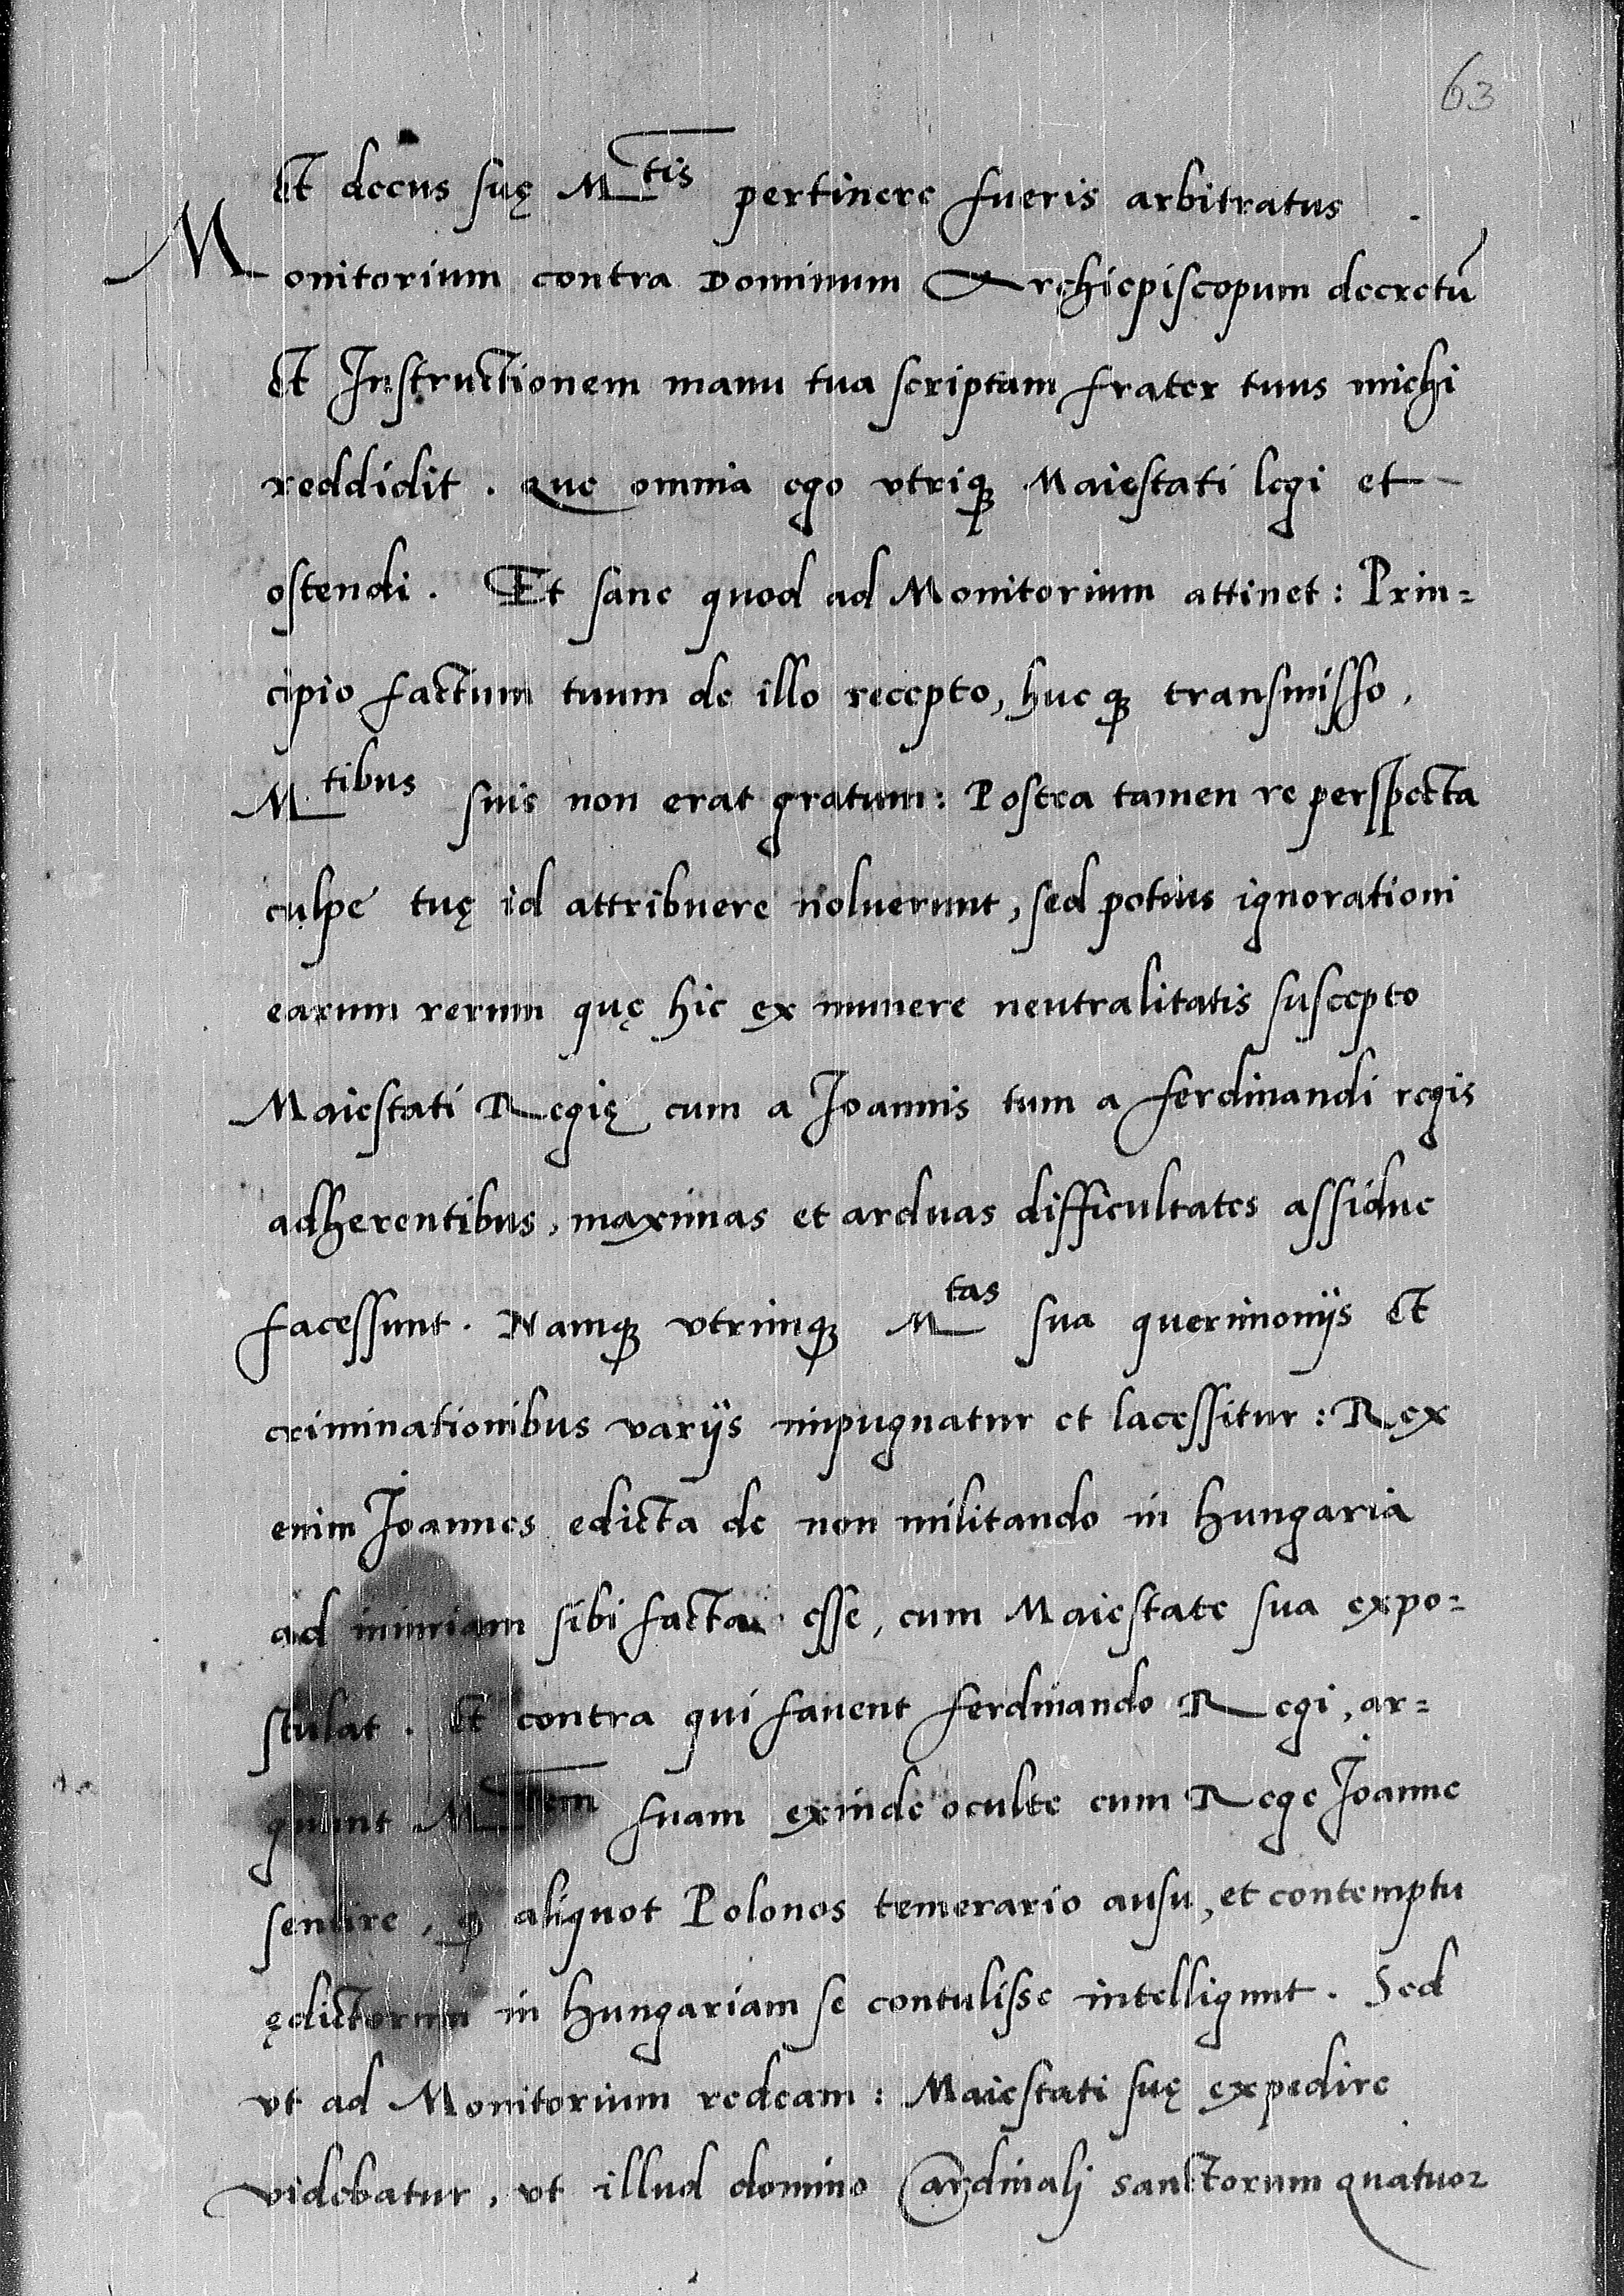 63
et decus suę M^tis pertinere fueris arbitratus .
Monitorium contra Dominum Archiepiscopum decretū
et Instructionem manu tua scriptam frater tuus michi
reddidit . Que omnia ego vtriqꝫ Maiestati legi et
ostendi . Et sane quod ad Monitorium attinet : Prin=
cipio factum tuum de illo recepto, hucqꝫ transmisso,
M^tibus suis non erat gratum : Postea tamen re perspecta
culpe tuę id attribuere noluerunt, sed potius ignorationi
earum rerum quę hic ex munere neutralitatis suscepto
Maiestati Regię cum a Joannis tum a ferdinandi regis
adherentibus, maximas et arduas difficultates assidue
facessunt . Namqꝫ vtrimqꝫ M^tas sua querimonijs et
criminationibus varijs impugnatur et lacessitur : Rex
enim Joannes edicta de non militando in hungaria
ad iniuriam sibi facta esse, cum Maiestate sua expo=
stulat . Et contra qui fauent ferdinando Regi, ar=
guunt M^tem suam exinde oculte cum Rege Joanne
sentire, ꝙ aliquot Polonos temerario ausu, et contemptu
ędictorum in hungariam se contulisse intelligunt . Sed
vt ad Monitorium redeam : Maiestati suę expedire
videbatur, vt illud domino Cardinalj sanctorum quatuor